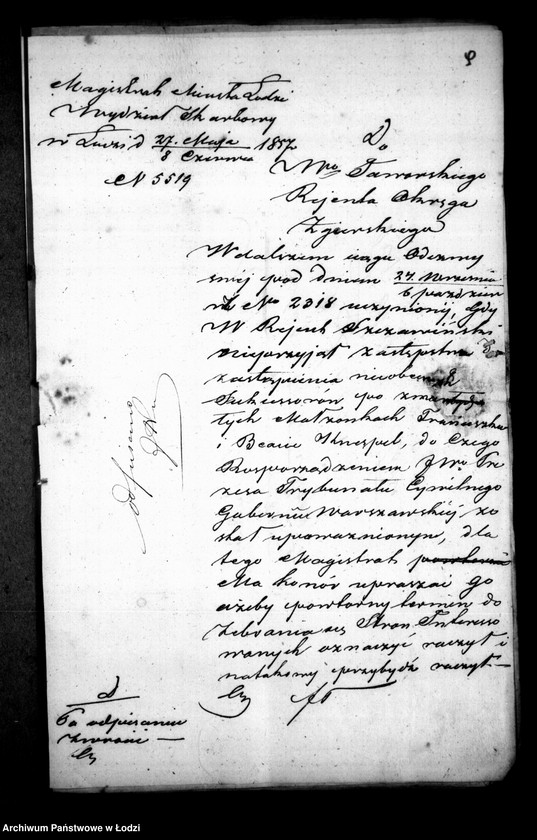 9
Magistrat Miasta Łodzi
Wydział Skarbowy
w Łodzi d 27. Maja / 8 Czerwca 1857
N 5519
Do
Wgo Jaworskiego
Rejenta Okręgu
Zgierskiego
W dalszem ciągu Odezwy
swéj pod dniem 27. Wrzesnia / 6 pazdzier
No 2318 uczynionéj, Gdy
W Rejent Szczawiński
nieprzyjął zastępstwa
zastąpienia nieobecnych
Sukcessorow po zmar
łych Małżonkach Franciszku
i Beacie Knespel, do Czego
Rosporządzeniem JWo Pre
zesa Trybunału Cywilnego
Gubernii Warszawskiéj zo
stał upoważnionym, dla
tego Magistrat
Ma honór upraszać go
ażeby powtorny termin do
Zebrania się Stron Interesso
wanych oznaczyć raczył i
natakowy przybydź raczył —
odpisano
d
Po odpisaniu
zwrócić —
Archiwum Państwowe w Łodzi